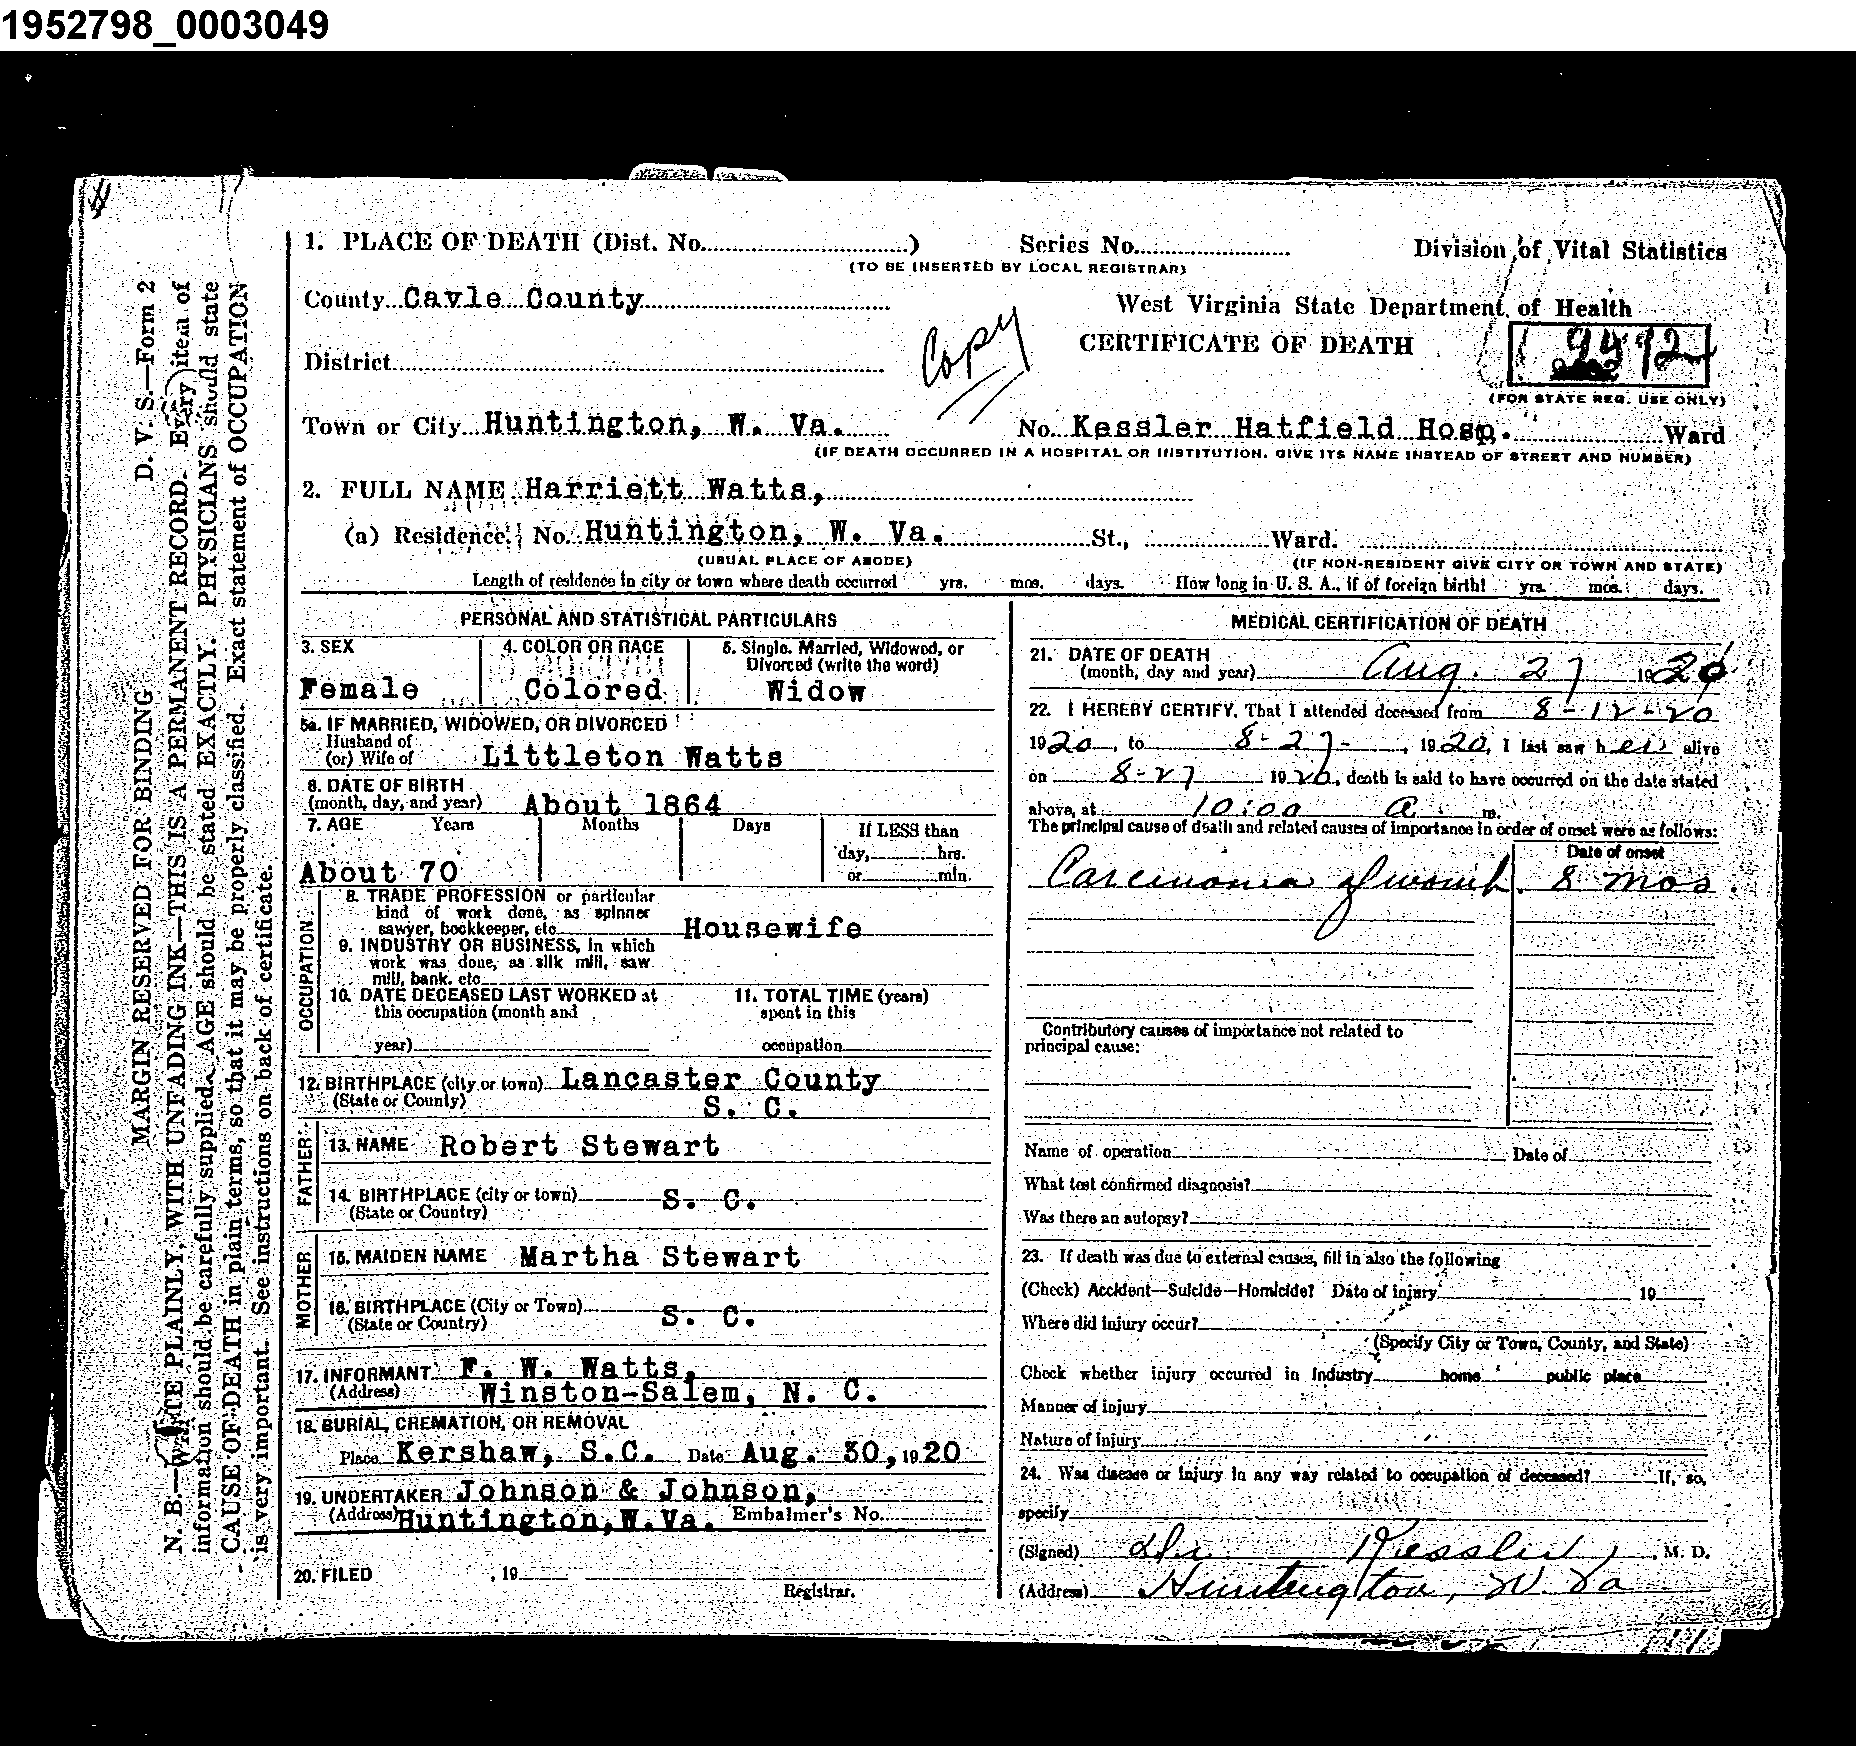 1952798_0003049
1. PLACE OF DEATH (Dist. No. ) Series No. Division of Vital Statistics
(TO BE INSERTED BY LOCAL REGISTRAR)
County Cavle County
West Virginia State Department of Health
Copy
CERTIFICATE OF DEATH
District
(FOR STATE REG. USE ONLY)
Town or City Huntington, W. Va. No. Kessler Hatfield Hosp. Ward
(IF DEATH OCCURRED IN A HOSPITAL OR INSTITUTION, GIVE ITS NAME INSTEAD OF STREET AND NUMBER)
2. FULL NAME Harriett Watts,
(a) Residence. No. Huntington, W. Va. St., Ward.
(USUAL PLACE OF ABODE) (IF NON-RESIDENT GIVE CITY OR TOWN AND STATE)
Length of residence in city or town where death occurred yrs. mos. days. How long in U. S. A., if of foreign birth? yrs. mos. days.
PERSONAL AND STATISTICAL PARTICULARS
3. SEX 4. COLOR OR RACE 5. Single, Married, Widowed, or
Divorced (write the word)
Female Colored Widow
5a. IF MARRIED, WIDOWED, OR DIVORCED
Husband of
(or) Wife of Littleton Watts
6. DATE OF BIRTH
(month, day, and year) About 1864
7. AGE Years Months Days If LESS than
day, hrs.
or min.
About 70
OCCUPATION
8. TRADE PROFESSION or particular
kind of work done, as spinner
sawyer, bookkeeper, etc. Housewife
9. INDUSTRY OR BUSINESS, in which
work was done, as silk mill, saw
mill, bank, etc.
10. DATE DECEASED LAST WORKED at 11. TOTAL TIME (years)
this occupation (month and spent in this
year) occupation
12. BIRTHPLACE (city or town) Lancaster County
(State or County) S. C.
FATHER
13. NAME Robert Stewart
14. BIRTHPLACE (city or town) S. C.
(State or Country)
MOTHER
15. MAIDEN NAME Martha Stewart
16. BIRTHPLACE (City or Town) S. C.
(State or Country)
17. INFORMANT F. W. Watts,
(Address) Winston-Salem, N. C.
18. BURIAL, CREMATION, OR REMOVAL
Place Kershaw, S.C. Date Aug. 30, 1920
19. UNDERTAKER Johnson & Johnson,
(Address) Huntington, W.Va. Embalmer's No.
20. FILED , 19
Registrar.
MEDICAL CERTIFICATION OF DEATH
21. DATE OF DEATH
(month, day and year) Aug. 27 1920
22. I HEREBY CERTIFY, That I attended deceased from 8-12-20
1920, to 8-27-, 1920, I last saw her alive
on 8-27 1920, death is said to have occurred on the date stated
above, at 10:00 a. m.
The principal cause of death and related causes of importance in order of onset were as follows:
Date of onset
Carcinoma of womb. 8 mos.
Contributory causes of importance not related to
principal cause:
Name of operation Date of
What test confirmed diagnosis?
Was there an autopsy?
23. If death was due to external causes, fill in also the following
(Check) Accident—Suicide—Homicide? Date of injury 19
Where did injury occur?
(Specify City or Town, County, and State)
Check whether injury occurred in Industry home public place
Manner of injury
Nature of injury
24. Was disease or injury in any way related to occupation of deceased? If, so,
specify
(Signed) Dr. Kessler, M. D.
(Address) Huntington, W. Va
D. V. S.—Form 2
MARGIN RESERVED FOR BINDING
N. B.—WRITE PLAINLY, WITH UNFADING INK—THIS IS A PERMANENT RECORD. Every item of
information should be carefully supplied. AGE should be stated EXACTLY. PHYSICIANS should state
CAUSE OF DEATH in plain terms, so that it may be properly classified. Exact statement of OCCUPATION
is very important. See instructions on back of certificate.